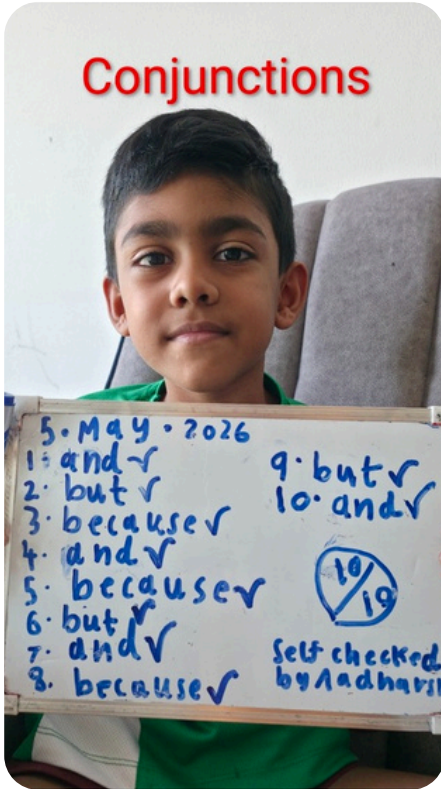 Conjunctions
5. May. 2026
1. and ✓
2. but ✓
3. because ✓
4. and ✓
5. because ✓
6. but ✓
7. and ✓
8. because ✓
9. but ✓
10. and ✓
10/10
Self checked
by Aadharsh